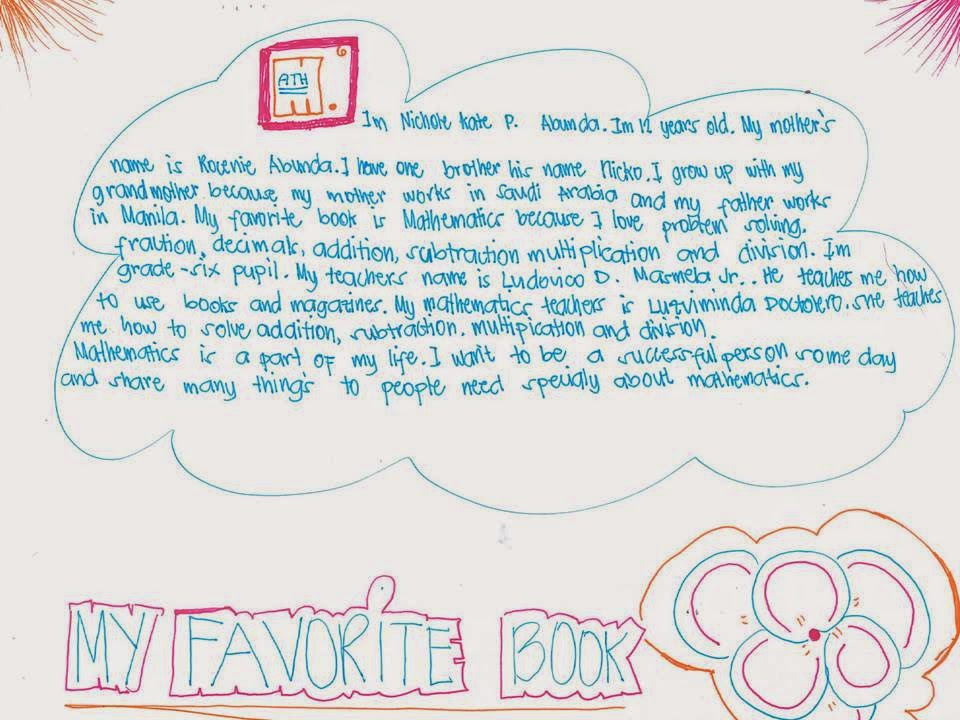 ATH
Im Nichole Kate P. Abunda. Im 12 years old. My mother's
name is Rocenie Abunda. I have one brother his name Nicko. I grow up with my
grandmother because my mother works in Saudi Arabia and my father works
in Manila. My favorite book is Mathematics because I love problem solving.
fraution, decimals, addition, subtraction multiplication and division. Im
grade-six pupil. My teachers name is Ludovico D. Masmela Jr.. He teaches me how
to use books and magazines. My mathematics teachers is Luzviminda Doctolero. She teaches
me how to solve addition, subtraction. multipication and division.
Mathematics is a part of my life. I want to be a successful person some day
and share many things to people need specially about mathematics.
MY FAVORITE BOOK